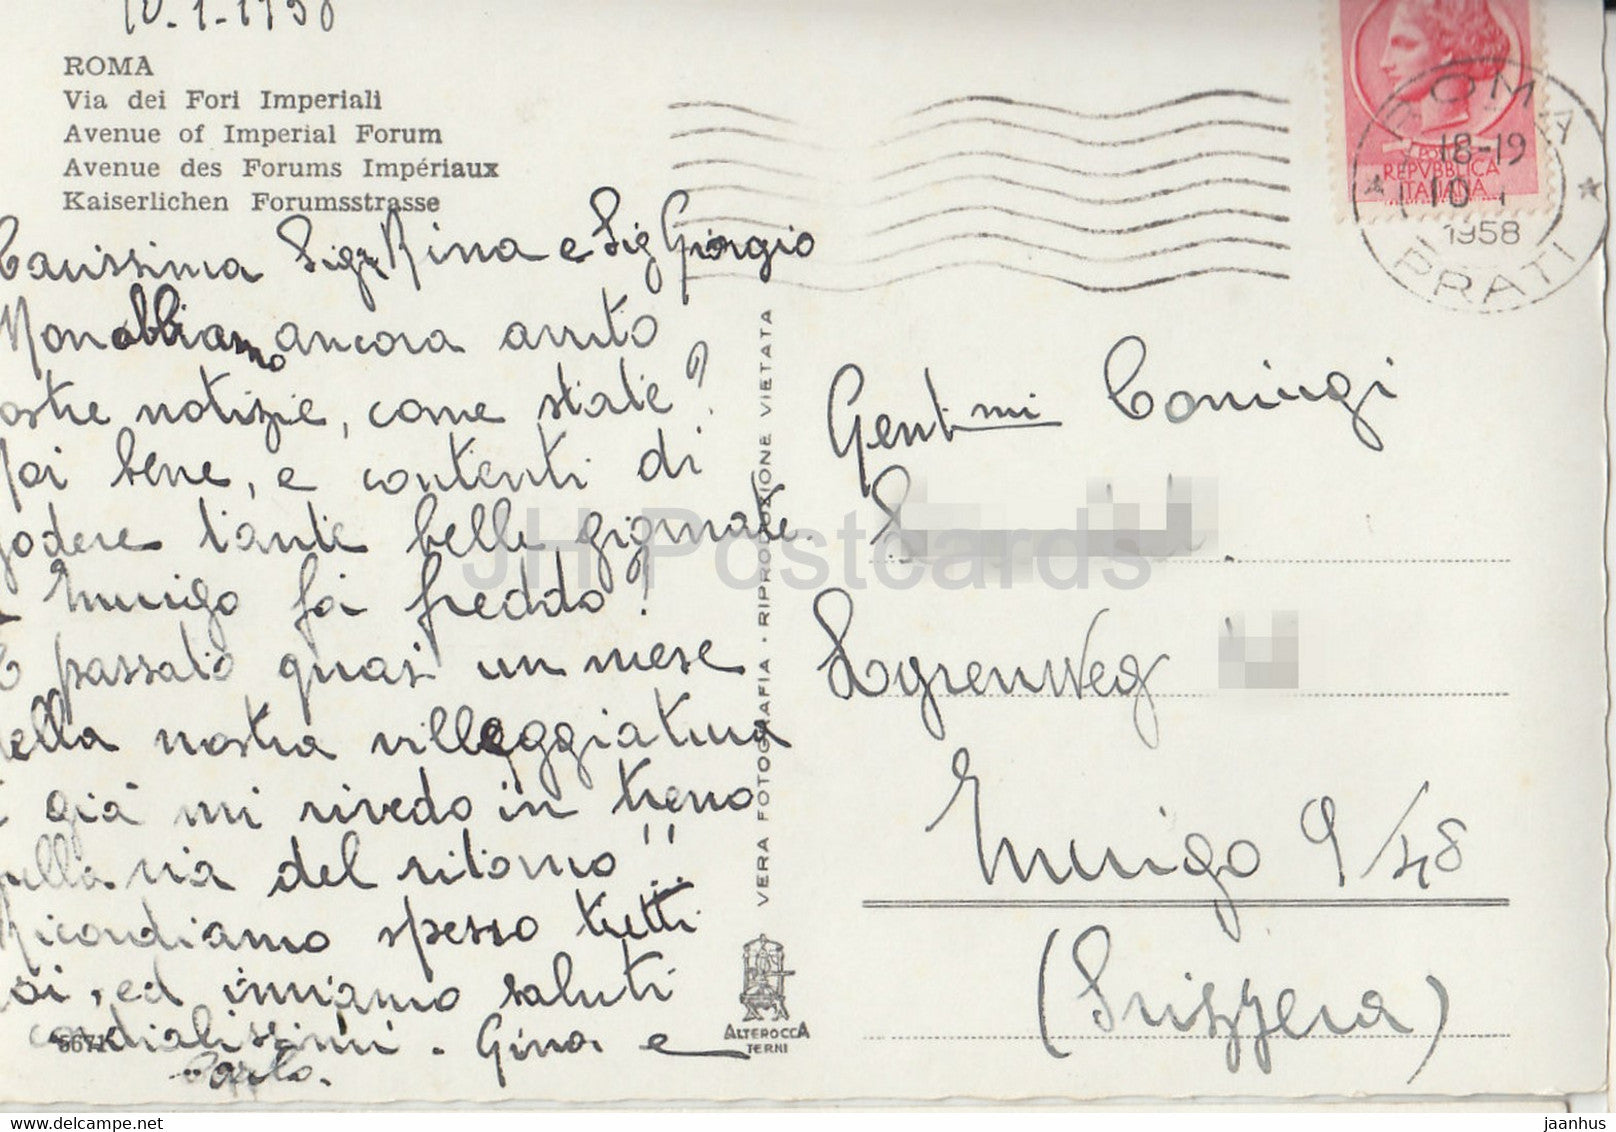 10-1-1958
ROMA
Via dei Fori Imperiali
Avenue of Imperial Forum
Avenue des Forums Impériaux
Kaiserlichen Forumsstrasse
Carissima Sig.ra Rina e Sig Giorgio
Non abbiamo ancora avuto
vostre notizie, come state?
Noi bene, e contenti di
godere tante belle giornate.
A Zurigo fa freddo?
È passato quasi un mese
della nostra villeggiatura
e già mi rivedo in treno
sulla via del ritorno!!
Ricordiamo spesso tutti
voi, ed inviamo saluti
cordialissimi. Gina e
Carlo.
667
VERA FOTOGRAFIA - RIPRODUZIONE VIETATA
ALTEROCCA
TERNI
POSTE
REPVBBLICA
ITALIANA
ROMA
18-19
10 1
1958
PRATI
Gent.mi Coniugi
Lyrenweg
Zurigo 9/48
(Svizzera)
JH Postcards
www.delcampe.net
jaanhus